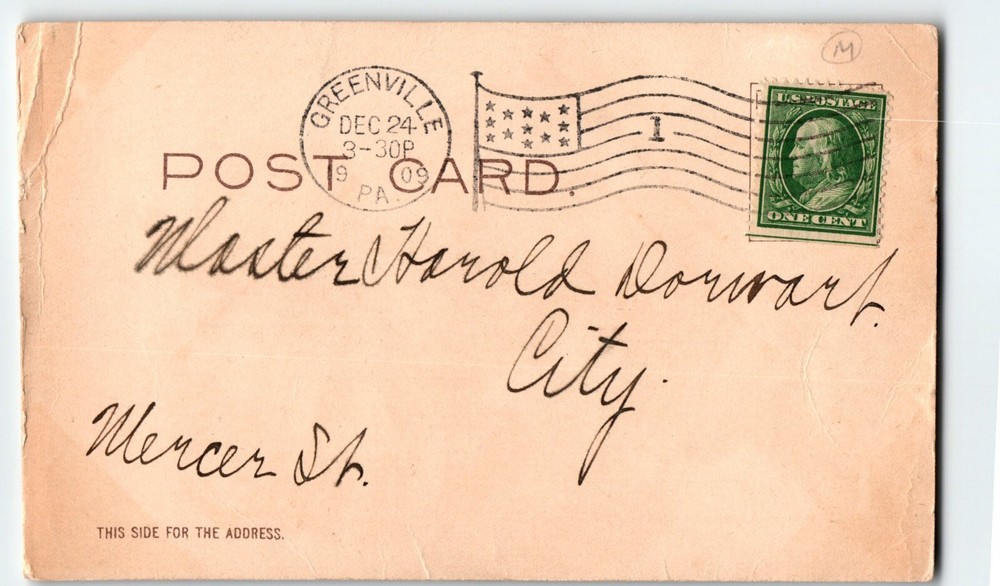 M
GREENVILLE
DEC 24
3-30P
1909
PA.
1
U.S. POSTAGE
ONE CENT
POST CARD.
Master Harold Dorwart.
City.
Mercer St.
THIS SIDE FOR THE ADDRESS.